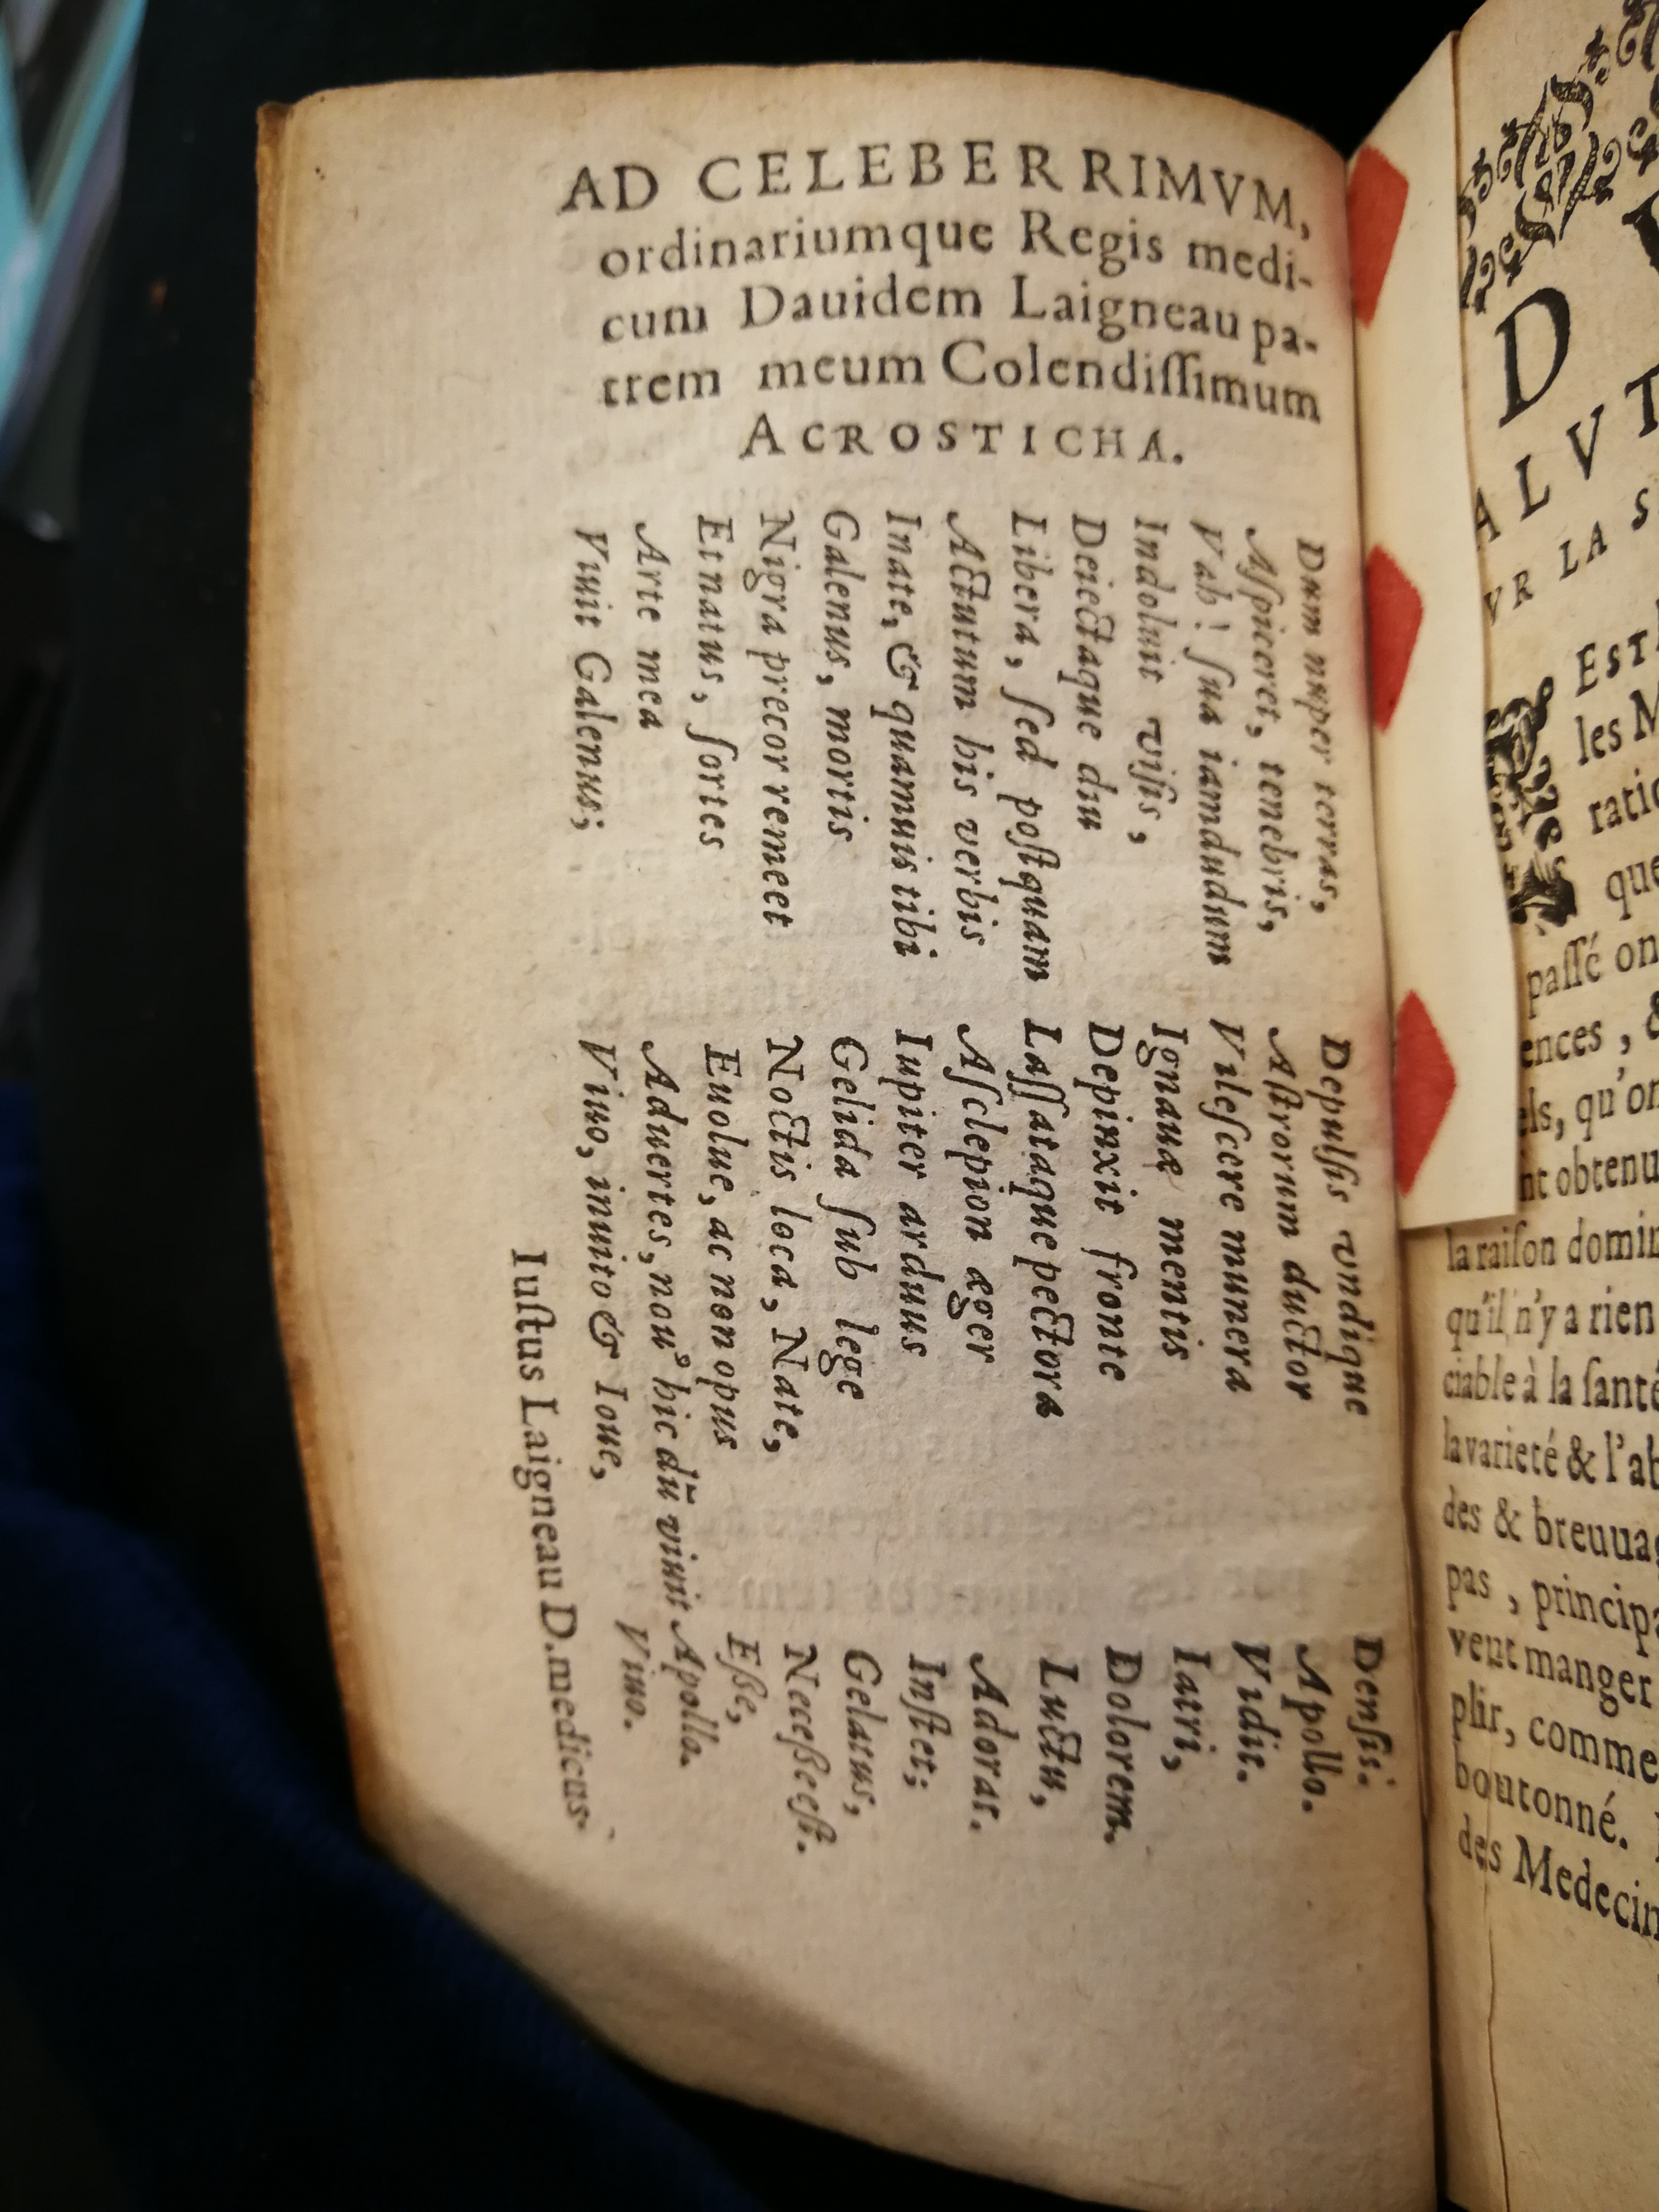 AD CELEBERRIMVM,
ordinariumque Regis medi-
cum Dauidem Laigneau pa-
trem meum Colendiſſimum
ACROSTICHA.
Dum nuper terras, Depulſis vndique Denſis.
Aſpiceret, tenebris, Aſtrorum ductor Apollo.
Vah! ſua iamdudum Vileſcere munera Vidit.
Indoluit viſis, Ignauæ mentis Iatri,
Deiectaque diu Depinxit fronte Dolorem.
Libera, ſed poſtquam Laſſataque pectora Luctu,
Actutum his verbis Aſclepion æger Adorat.
Inate, & quamuis tibi Iupiter arduus Inſtet;
Galenus, mortis Gelida ſub lege Gelatus,
Nigra precor remeet Noctis loca, Nate, Neceßeeſt.
Et natus, ſortes Euolue, ac non opus Eße,
Arte mea Aduertes, nouꝰ hic dũ viuit Apollo.
Viuit Galenus; Viuo, inuito & Ioue, Viuo.
Iuſtus Laigneau D. medicus.
D
ALVT
VR LA S
EST
les M
ratio
que
paſſé on
ences, &
els, qu'on
nt obtenu
la raiſon domin
qu'il n'y a rien
ciable à la ſanté
la varieté & l'ab
des & breuuag
pas, principa
vent manger
plir, comme
boutonné.
des Medecin